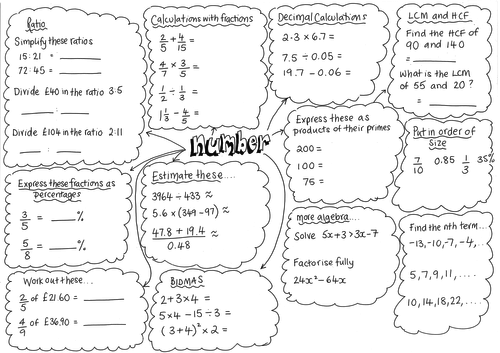 Ratio
Simplify these ratios
15:21 = ____
72:45 = ____
Divide £40 in the ratio 3:5
____ : ____
Divide £104 in the ratio 2:11
____ : ____
Calculations with fractions
2/5 + 4/15 =
4/7 × 3/5 =
1/2 ÷ 1/3 =
1 1/3 - 4/5 =
Decimal Calculations
2.3 × 6.7 =
7.5 ÷ 0.05 =
19.7 - 0.06 =
LCM and HCF
Find the HCF of
90 and 140
= ____
What is the LCM
of 55 and 20?
= ____
number
Express these fractions as
percentages
3/5 = ____%
5/8 = ____%
Estimate these....
3964 ÷ 433 ≈
5.6 × (349-97) ≈
47.8 + 19.4 / 0.48 ≈
Express these as
products of their primes
200 =
100 =
75 =
Put in order of
size
7/10 0.85 1/3 35%
Work out these...
2/5 of £21.60 = ____
4/9 of £36.90 = ____
BIDMAS
2+3×4 =
5×4-15÷3 =
(3+4)²×2 =
more algebra....
Solve 5x+3>3x-7
Factorise fully
24x²-64x
Find the nth term...
-13,-10,-7,-4,...
5,7,9,11,....
10,14,18,22,....